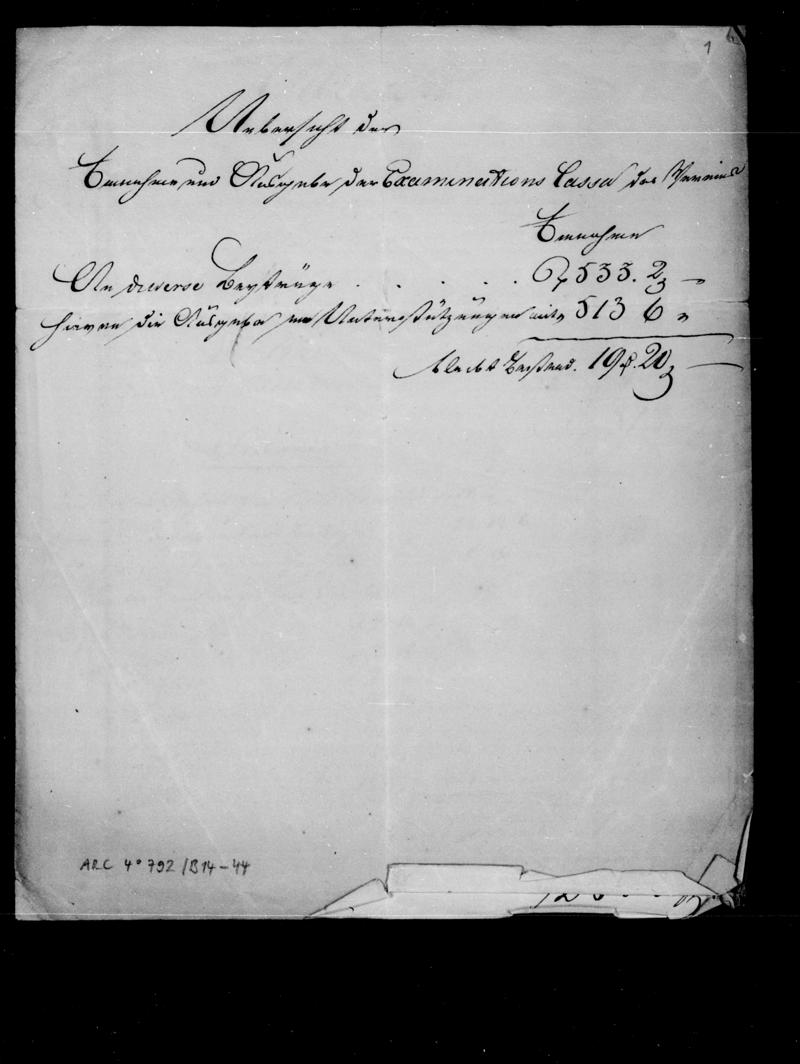 1
Uebersicht der
Einnahme und Ausgabe der Examinations Cassa des Vereins
Einnahme
An diverse Beyträge . . . . . 533. 2
hievon die Ausgabe an Unterstützungen mit 513 6 "
bleibt Bestand. 19. 20
ARC 4° 792 /B14-44